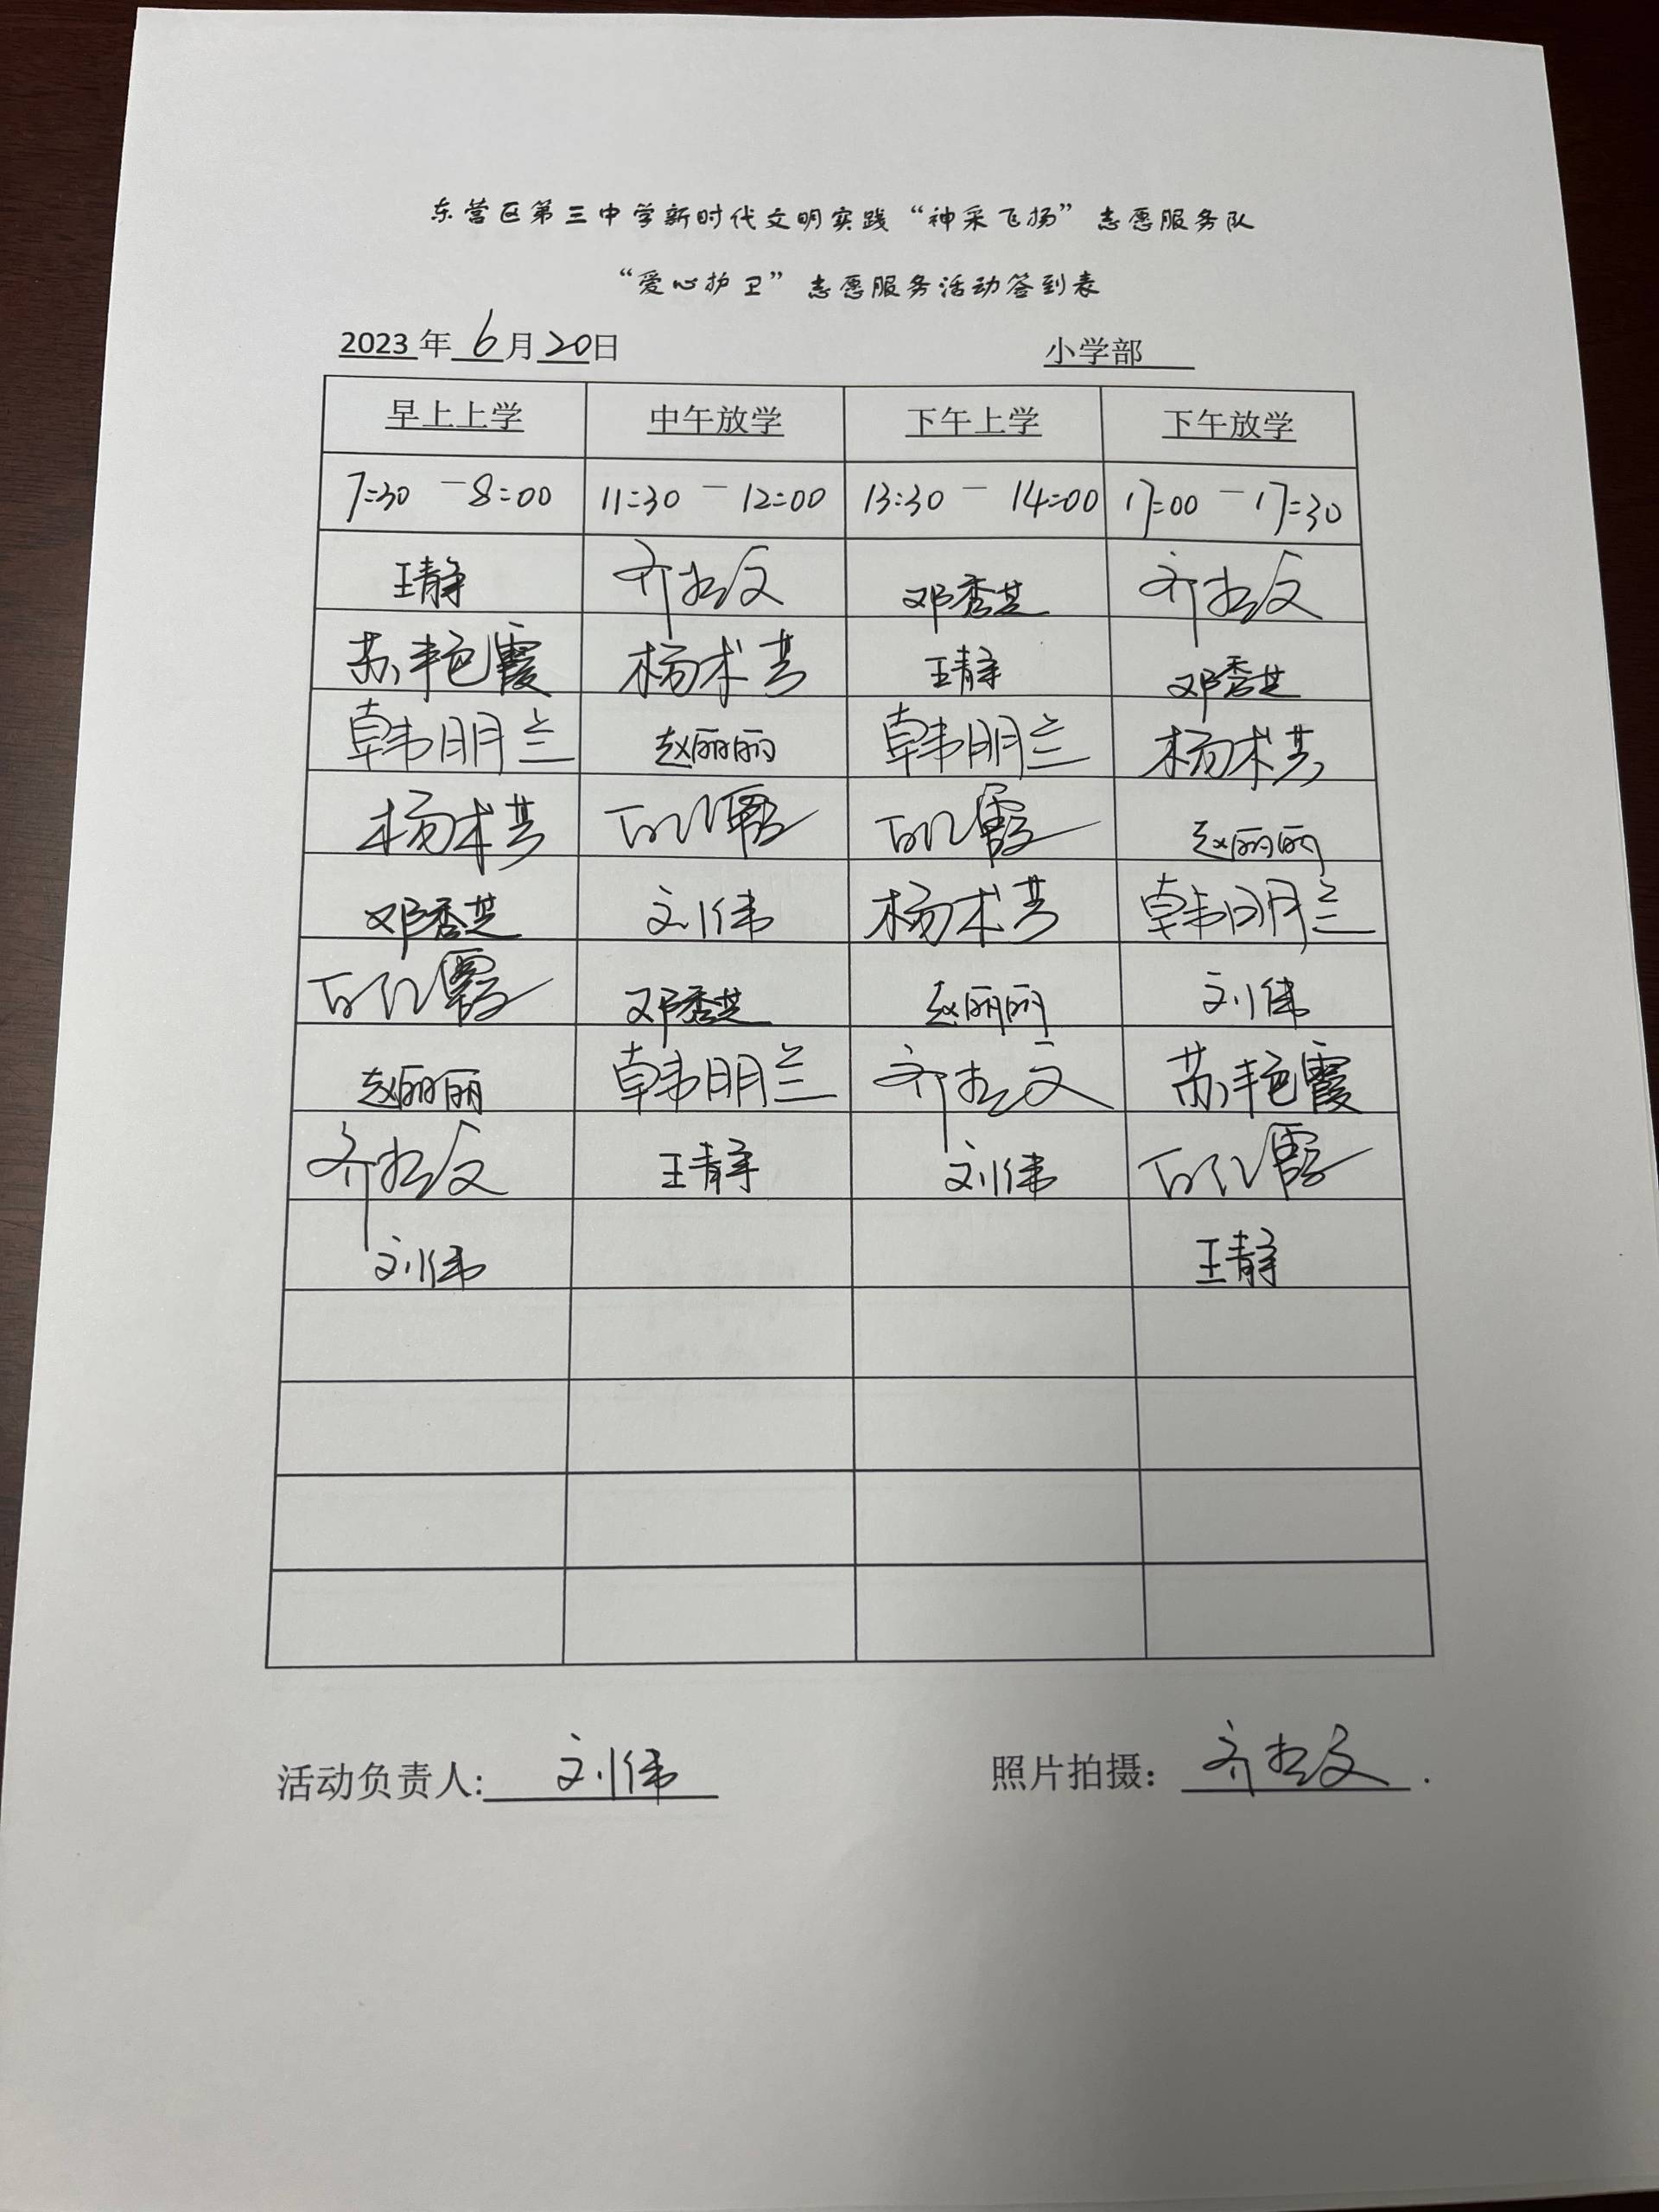 东营区第三中学新时代文明实践“神采飞扬”志愿服务队
“爱心护卫”志愿服务活动签到表
2023 年 6 月 20 日 小学部
早上上学 中午放学 下午上学 下午放学
7:30 - 8:00 11:30 - 12:00 13:30 - 14:00 17:00 - 17:30
王静 邓秀芝
苏艳霞 杨术芸 王静 邓秀芝
韩明兰 赵丽丽 韩明兰 杨术芸
杨术芸 赵丽丽
邓秀芝 刘伟 杨术芸 韩明兰
邓秀芝 赵丽丽 刘伟
赵丽丽 韩明兰 苏艳霞
王静 刘伟
刘伟 王静
活动负责人: 刘伟 照片拍摄：